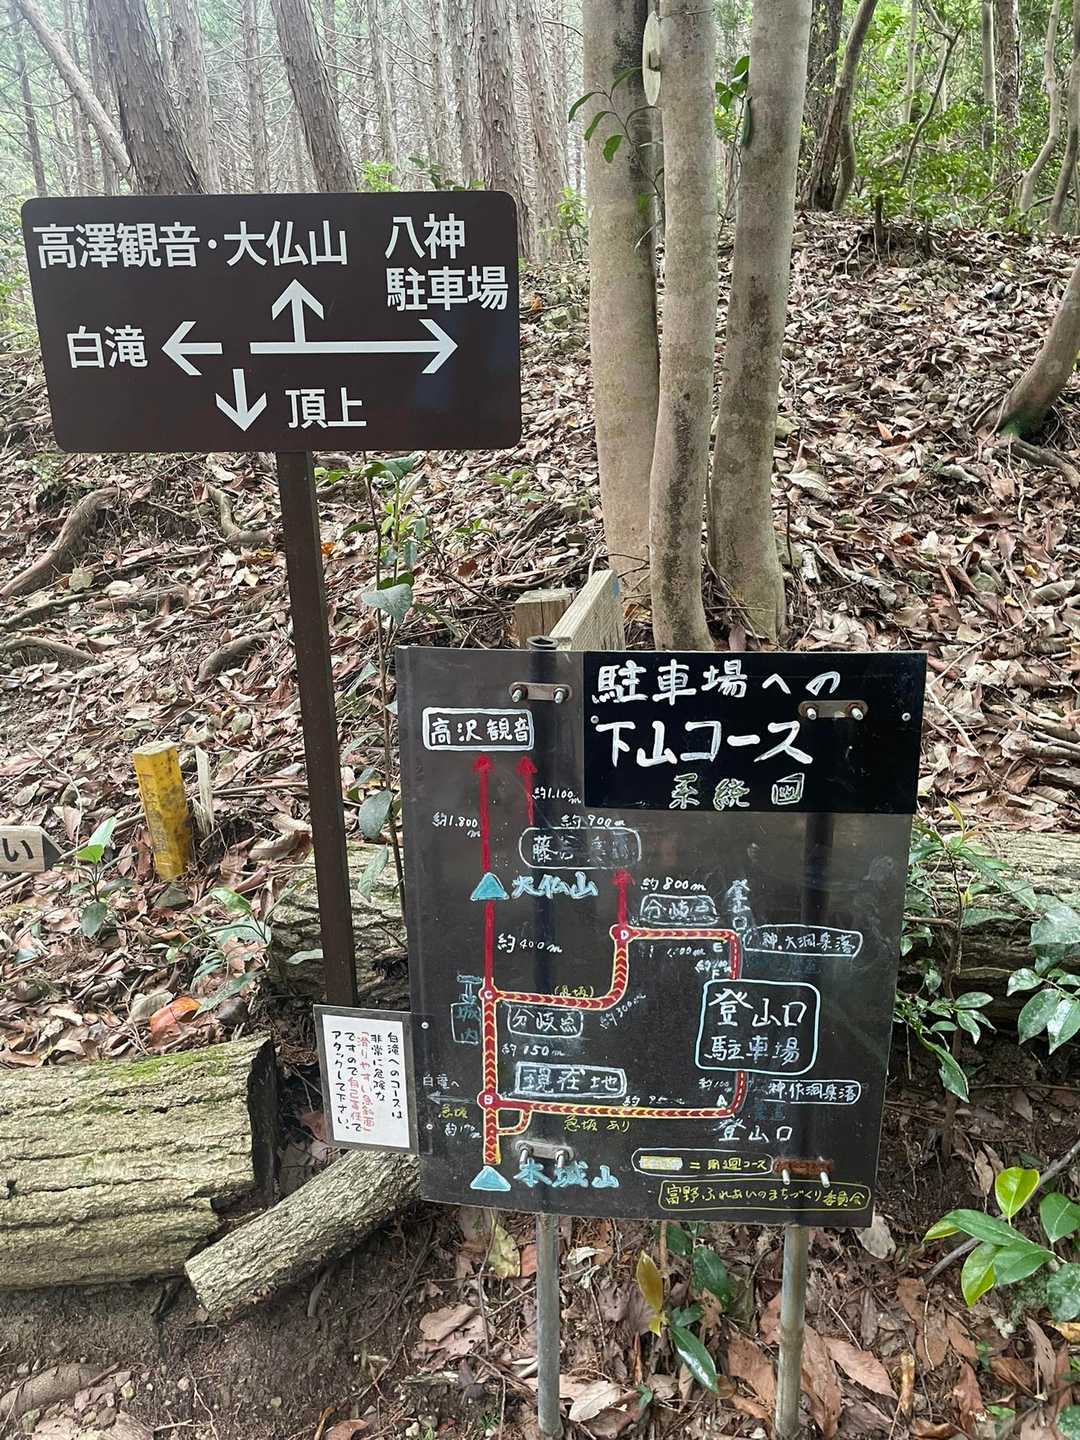 高澤観音・大仏山
八神
駐車場
白滝
頂上
い
駐車場への
下山コース
系統図
高沢観音
約1.100m
約1.800m
約900m
大仏山
約800m
分岐点
登
口
D
約400m
神.大洞集落
E
F
C
(急坂)
分岐点
約300m
城
内
登山口
駐車場
約150m
現在地
白滝へ
B
急坂
約100
神.作洞集落
A
急坂 あり
登山口
本城山
=周廻コース
富野ふれあいのまちづくり委員会
白滝へのコースは
非常に危険な
「滑りやすい急斜面」
ですので自己責任で
アタックして下さい。